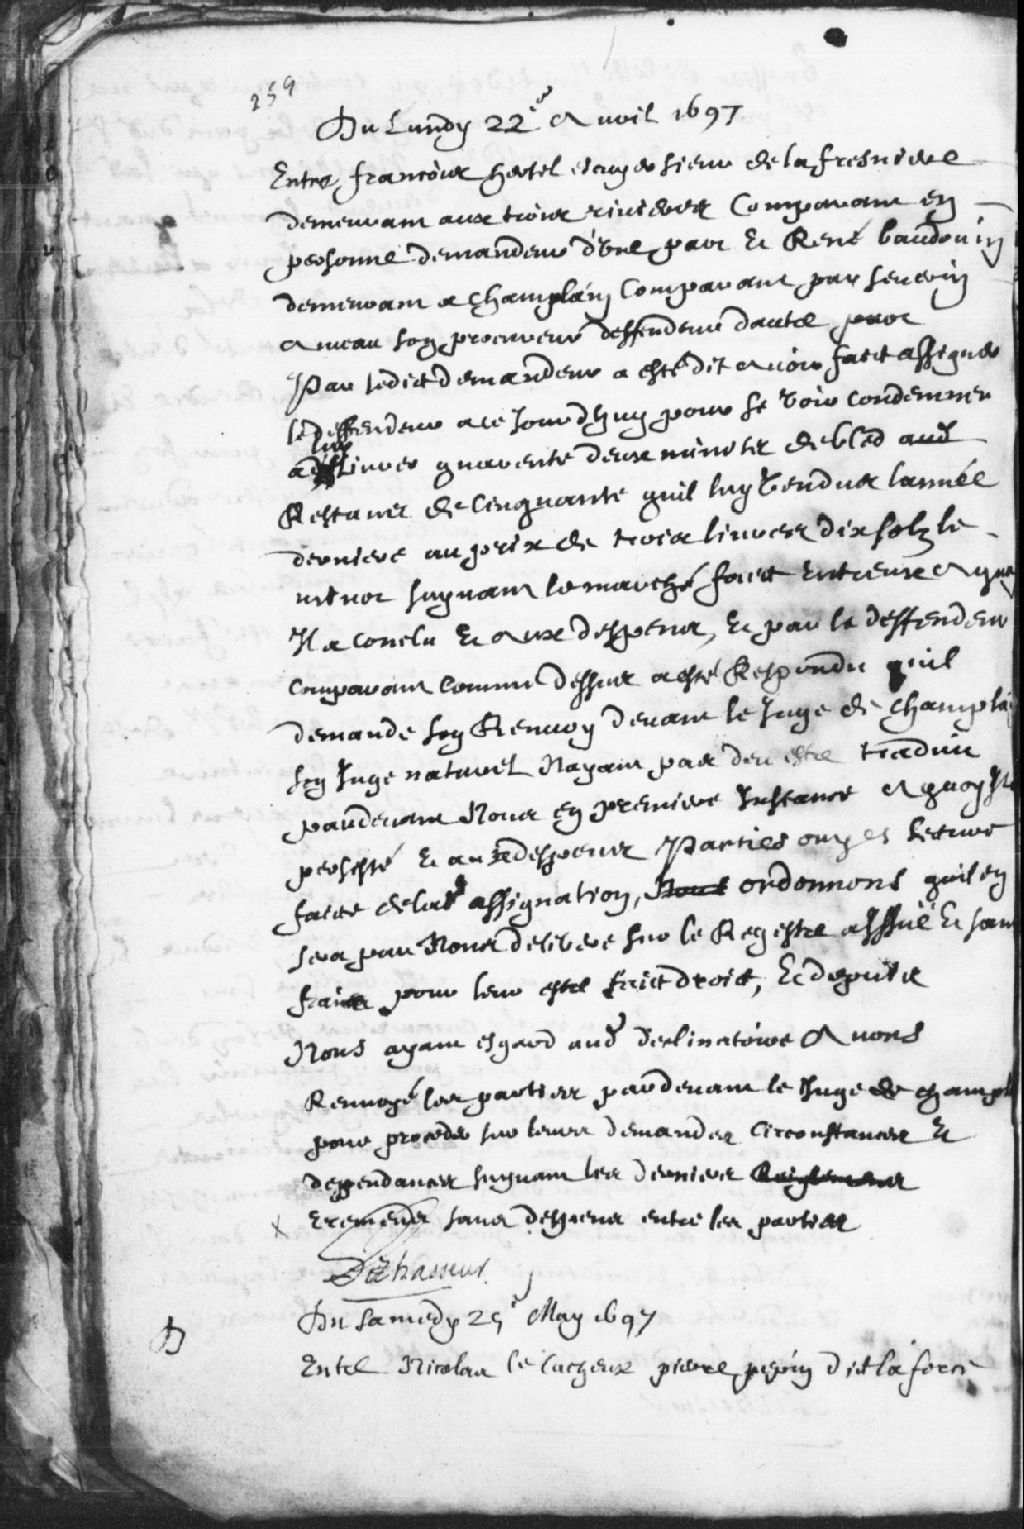 259
Du Lundy 22e Avril 1697
Entre francois hertel escuyer sieur de la fresniere
demeurant aux trois rivieres Comparant en
personne demandeur d'Une part Et René baudouin
demeurant a Champlain Comparant par Severin
Ameau son procureur deffendeur dautre part
Par ledict demandeur a esté dit Avoir faict assigner
le deffendeur a ce Jourdhuy pour se voir condemner
a luy Livrer quarente deux minotz de bled aud
Restants de Cinquante quil luy Vendus lannée
derniere au prix de trois livres dix solz le
minot suyvant le marché faict Entreux A quoy
Il a Conclu Et Aux despens, Et par le deffendeur
comparant comme dessus a esté Respondu quil
demande son Renvoy devant le Juge de Champlain
son Juge naturel Nayant pas deu estre traduit
pardevant Nous en premiere Instance A quoy Il
persisté Et aux despens Parties ouyes lecture
faicte de lad assignation, Nous ordonnons quil en
sera par Nous deliberé sur le Registre assisté Et sans
frais pour leur estre faict droict, Et depuis
Nous ayant esgard aud declinatoire Avons
Renvoyé les parties pardevant le Juge de champlain
pour proceder sur leurs demandes Circonstances Et
dependances suyvant les derniers Reiglemens
x Erremens sans despens entre les parties
Dechasseur
Du Samedy 25e May 1697
Entre Nicolas le lucheux pierre pepin dit laforce